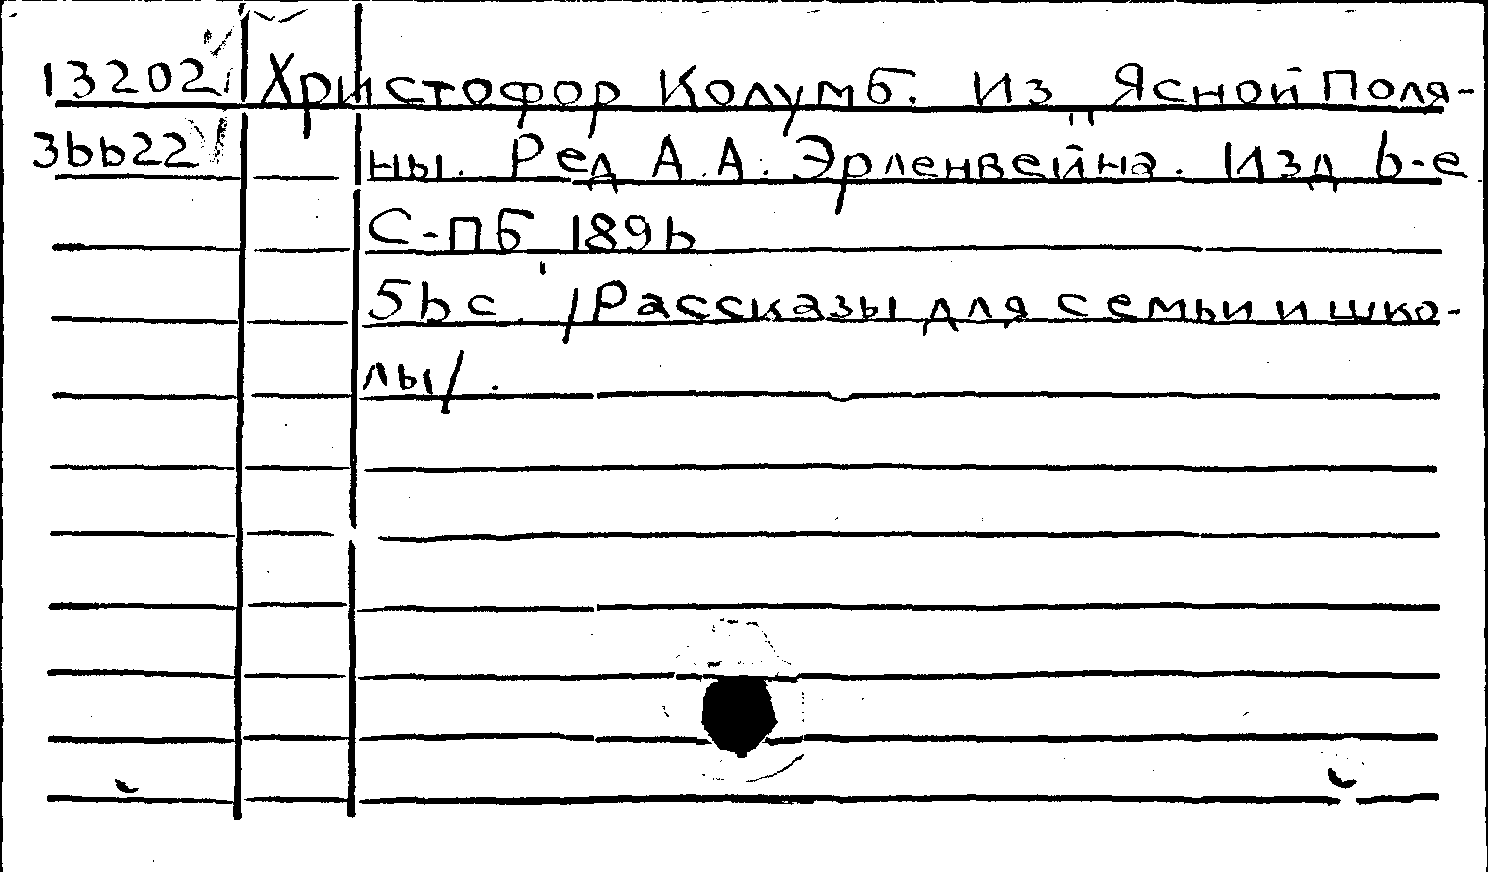 13202 Христофор Колумб. Из Ясной Поля-
36622 ны. Ред А.А. Эрленвейна. Изд 6-е
С-ПБ 1896
56 с. /Рассказы для семьи и шко-
лы/.